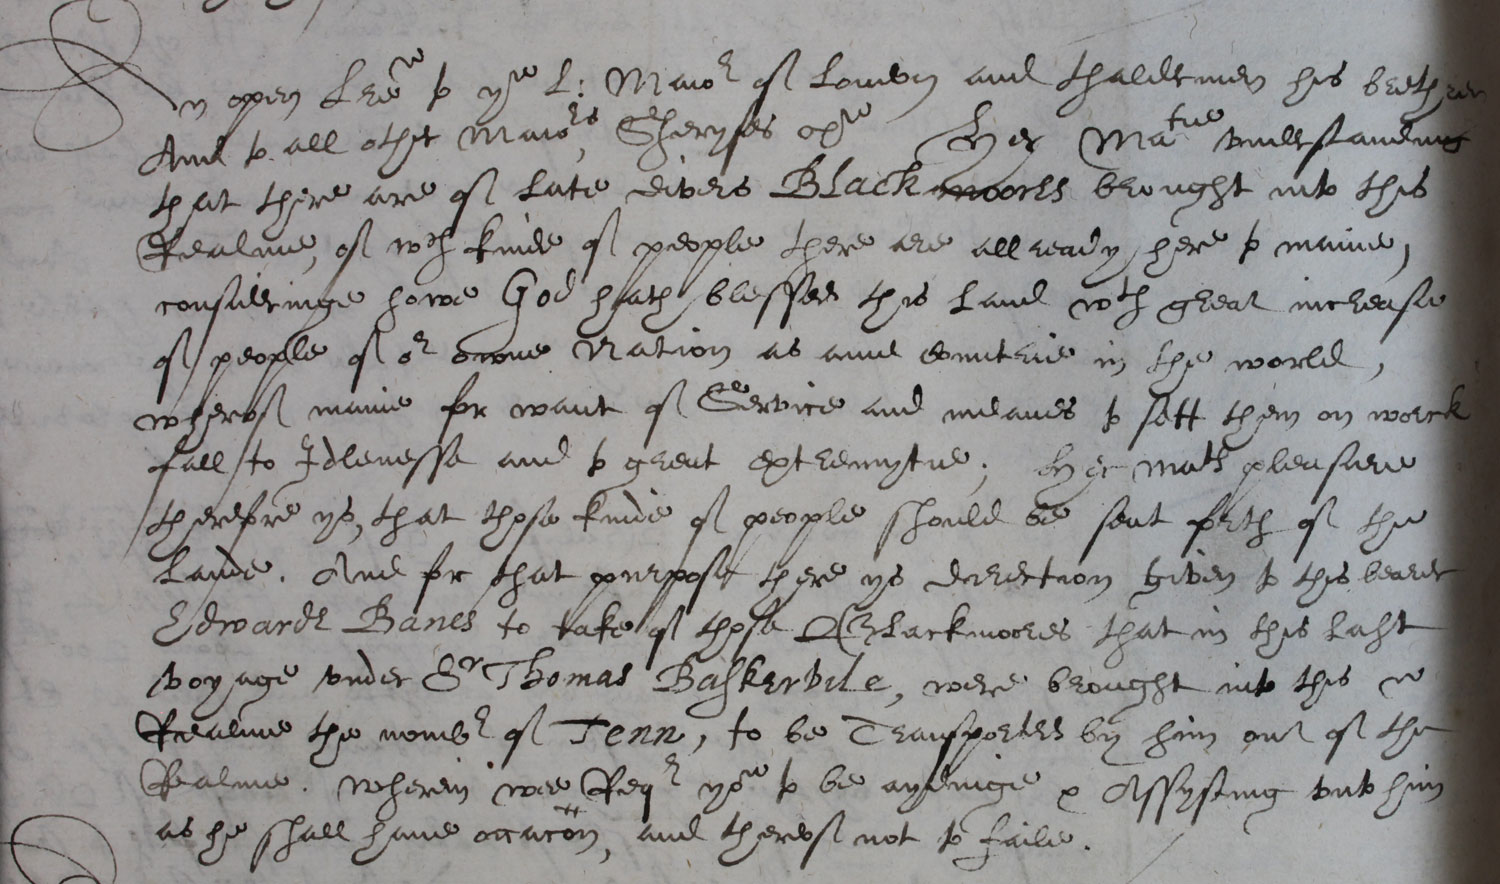 An open lre to ye L: Maior of London and thaldermen his brethren
And to all other Maiors, Sheryfes &c. Her Matie understanding
that there are of late divers Blackmoores brought into this
Realme, of wch kinde of people there are allready here to manie,
consideringe howe God hath blessed this land wth great increase
of people of or owne Nation as anie Countrie in the world,
wherof manie for want of Service and meanes to sett them on worck
fall to Idlenesse and to great extremytie; Her Mats pleasure
therefore ys, that those kinde of people should be sent forth of the
lande. And for that purpose there ys direction given to this bearer
Edwarde Banes to take of those Blackmoores that in this last
voyage under Sr Thomas Baskervile, were brought into this
Realme the nombr of Tenn, to be Transported by him out of the
Realme. Wherein wee Reqr you to be aydinge & Assysting unto him
as he shall have occacion, and therof not to faile.